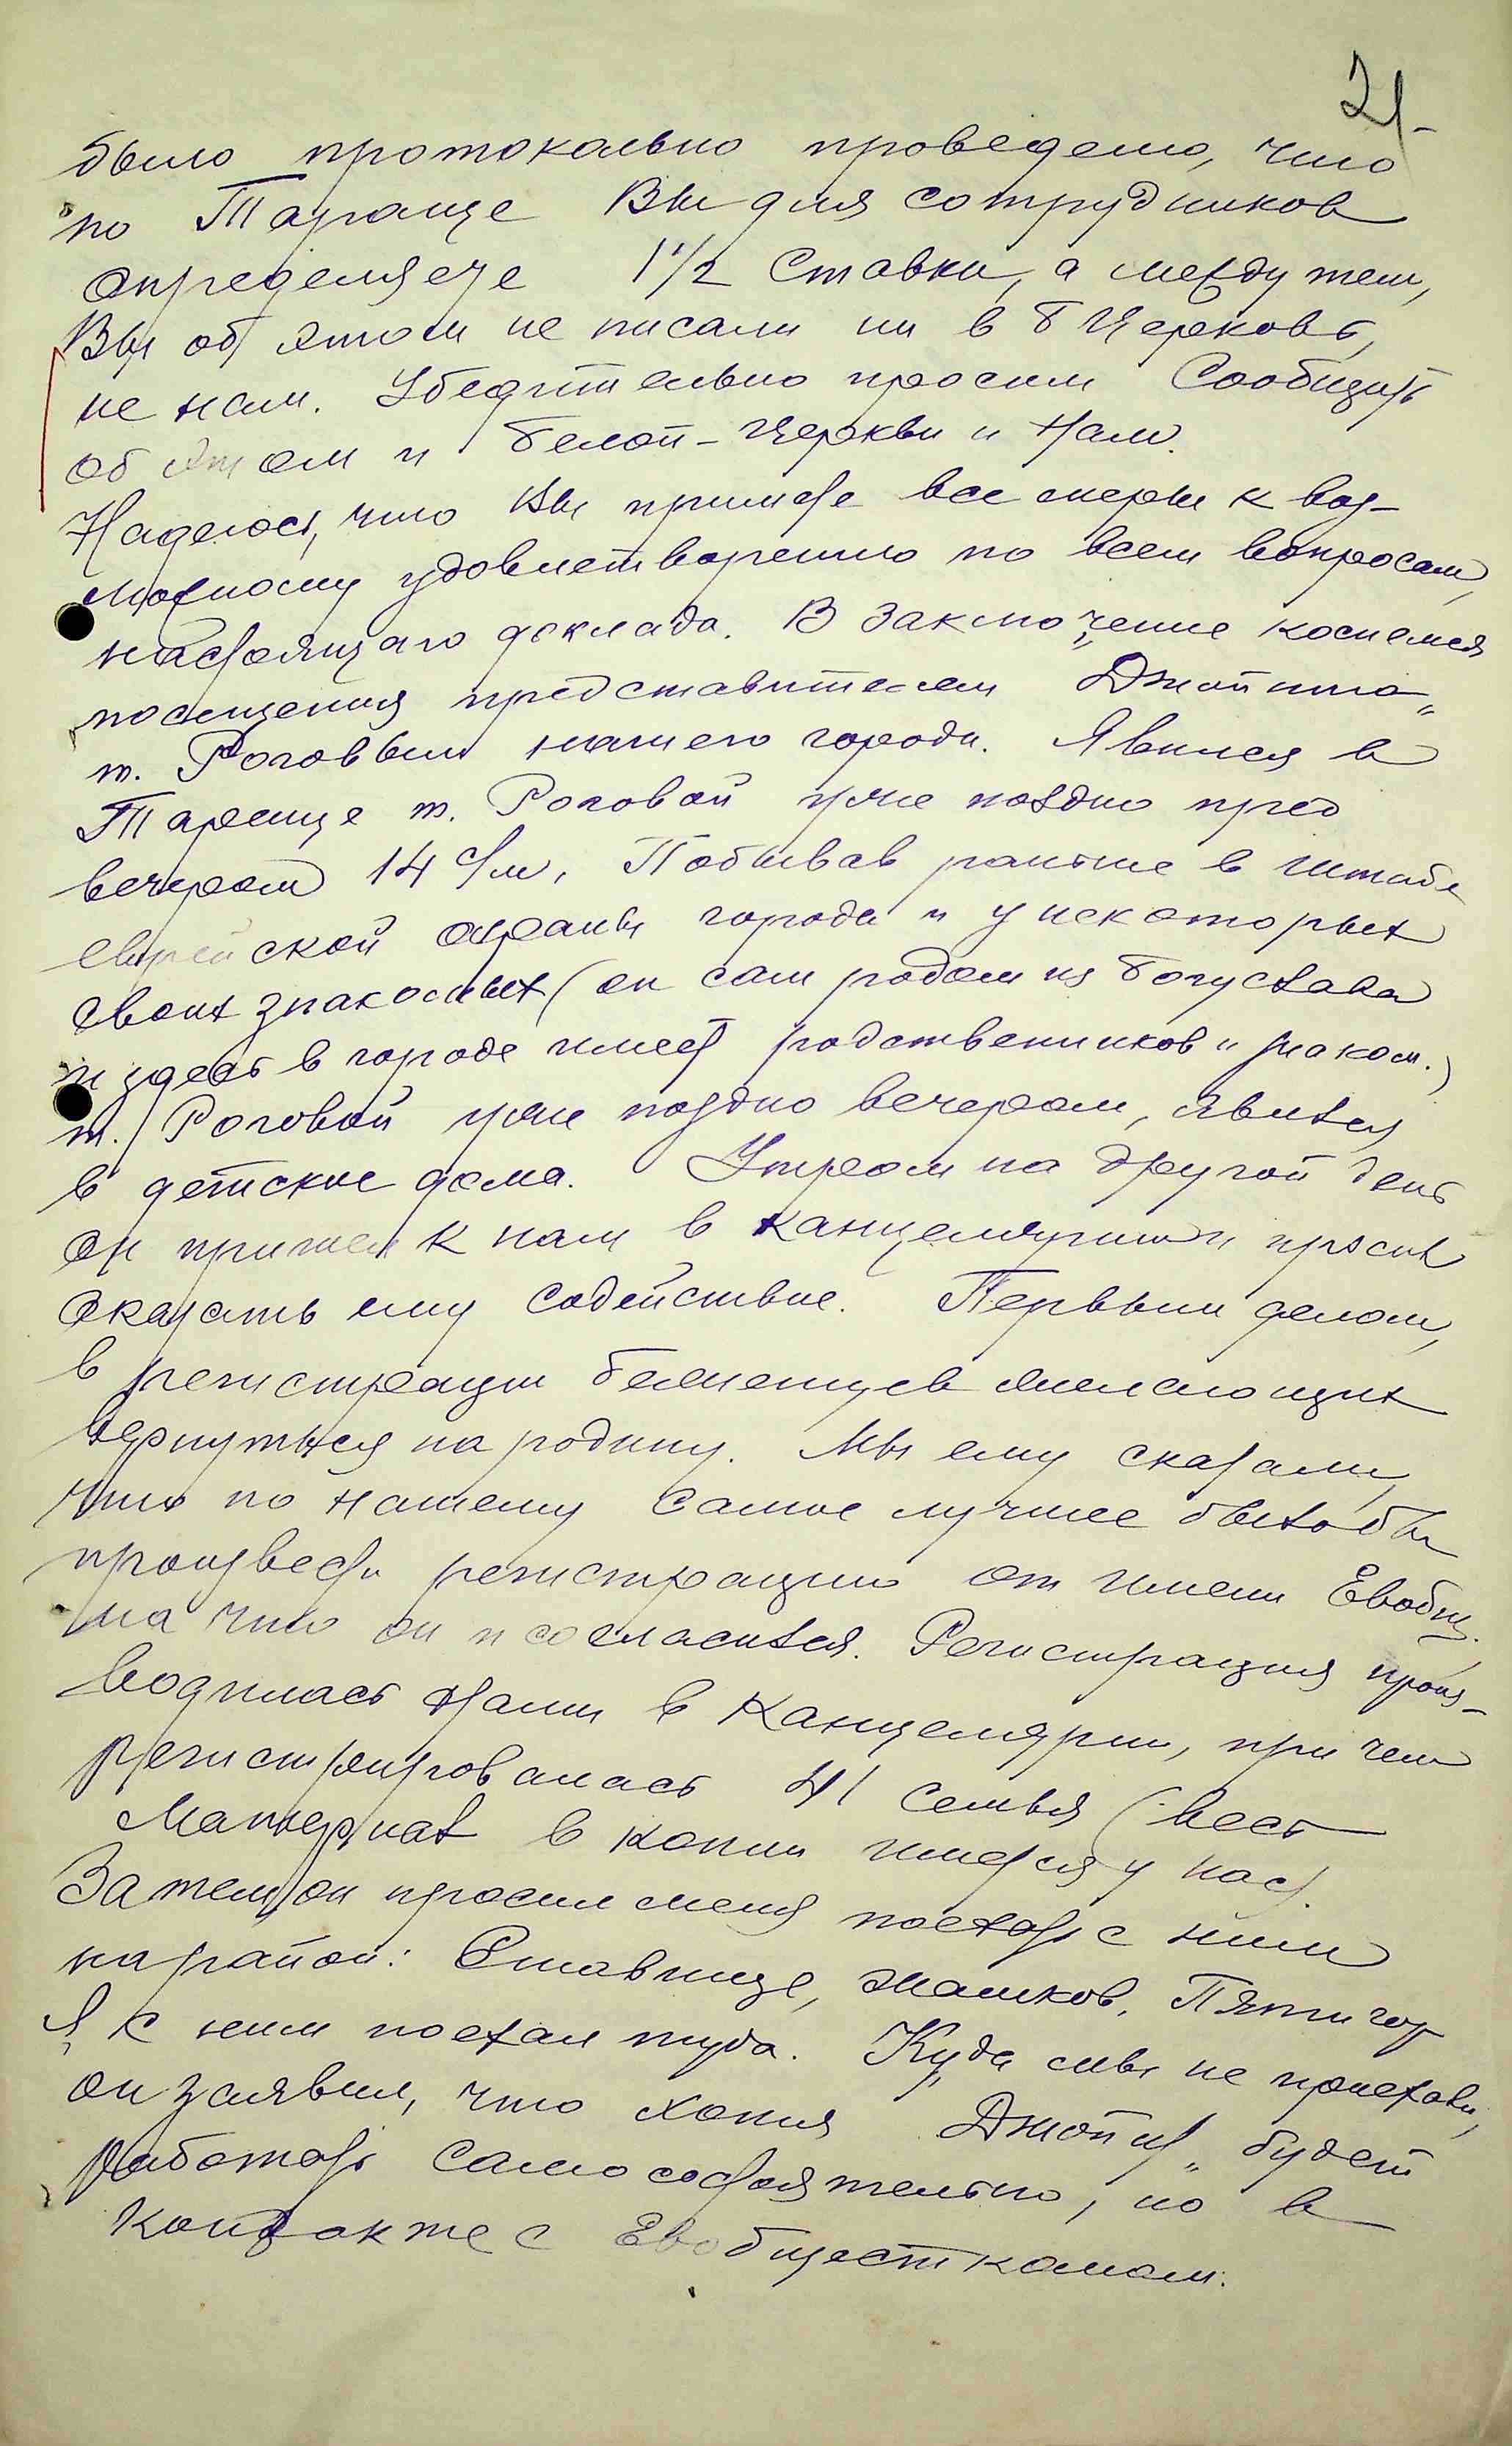 21
было протокольно проведено, что
по Тараще Вы для сотрудников
определяете 1 1/2 ставки, а между тем,
Вы об этом не писали ни в Б Церковь,
не нам. Убедительно просим сообщить
об этом и Белой-Церкви и нам.
Надеюсь, что Вы примете все меры к воз-
можному удовлетворению по всем вопросам,
настоящаго доклада. В заключение коснемся
посещения представителем „Джойнта„
т. Роговым нашего города. Явился в
Тараще т. Роговой уже поздно пред
вечером 14 с/м, Побывав раньше в штабе
еврейской охраны города и у некоторых
своих знакомых (он сам родом из Богуслава
и здесь в городе имеет родственников и знаком.)
т. Роговой уже поздно вечером, явился
в детские дома. Утром на другой день
он пришел к нам в канцелярию и просил
оказать ему содействие. Первым делом,
в регистрации беженцев желающих
вернуться на родину. Мы ему сказали,
что по нашему самое лучшее было бы
произвести регистрацию от имени Евобщ.
на что он и согласился. Регистрация произ-
водилась нами в канцелярии, при чем
регистрировалась 41 семья (весь
материал в копии имеется у нас).
Затем он просил меня поехать с ним
на район: Ставище, Жашков, Пятигор
Я с ним поехал туда. Куда мы не приехали,
он заявил, что хотя „Джойнт„ будет
работать самостоятельно, но в
контакте с Евобщесткомом.